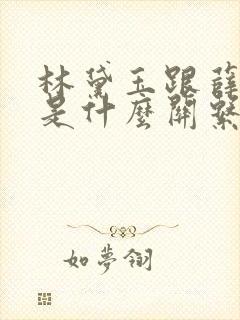 林黛玉跟薛
是什麼關繫
如夢翎